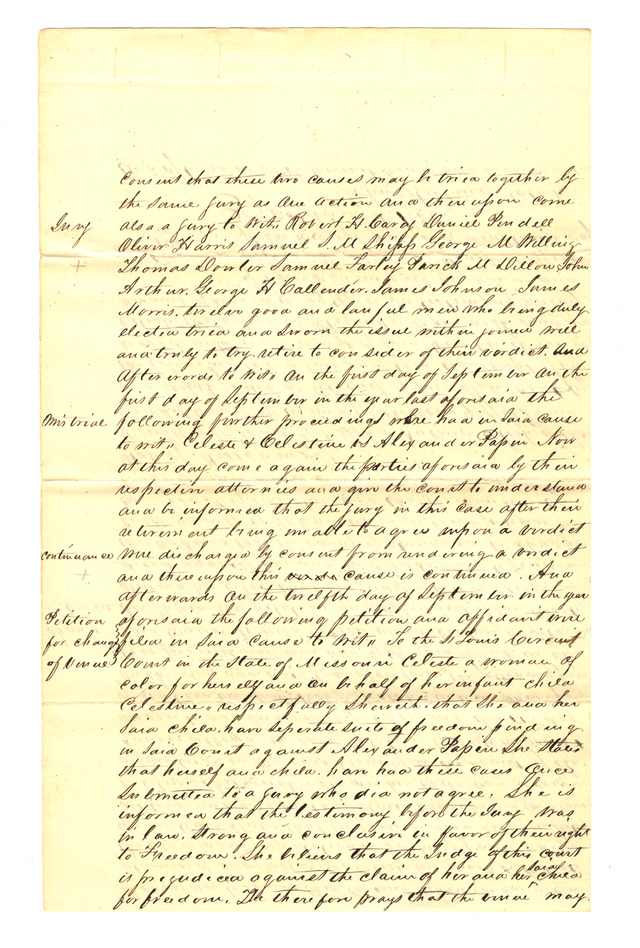 consent that these two causes may be tried together by
Jury the same Jury as One action and thereupon come
also a Jury to Wit, Robert H. Cary Daniel Pendell
Oliver Harris Samuel S. M Shipp George M Willing
Thomas Dowler Samuel Farley Parick M Dillow John
Arthur. George H Callender. James Johnson James
Morris. twelve good and lawful men who being duly
elected tried and sworn the issue within joined well
and truly to try retire to consider of their verdict. And
Afterwords to Wit, On the first day of September On the
first day of September in the year last aforesaid the
Mis trial following further proceedings were had in said cause
to wit, Celeste & Celestine vs Alexander Papin Now
at this day come again the parties aforesaid by their
respective attornies and give the court to understand
and be informed that the jury in this case after their
retirement being unable to agree upon a verdict
Continuance were discharged by consent from rendering a verdict
and thereupon this cause is continued. And
afterwards On the twelfth day of September in the year
Petition aforesaid the following petition and affidavit were
for change filed in said cause to Wit, To the St Louis Circuit
of Venue Court in the State of Missouri Celeste a woman of
color for herself and On behalf of her infant child
Celestine, respectfully sheweth. that She and her
said child. have seperate suits of freedom pending
in said Court against Alexander Papin She states
that herself and child. have had these cases Once
Submitted to a jury who did not agree. She is
informed that the testimony before the Jury was
in law. Strong and conclusive in favor of their right
to Freedom. She believes that the Judge of this court
is prejudiced against the claim of her and her said child
for freedom. She therefore prays that the venue may